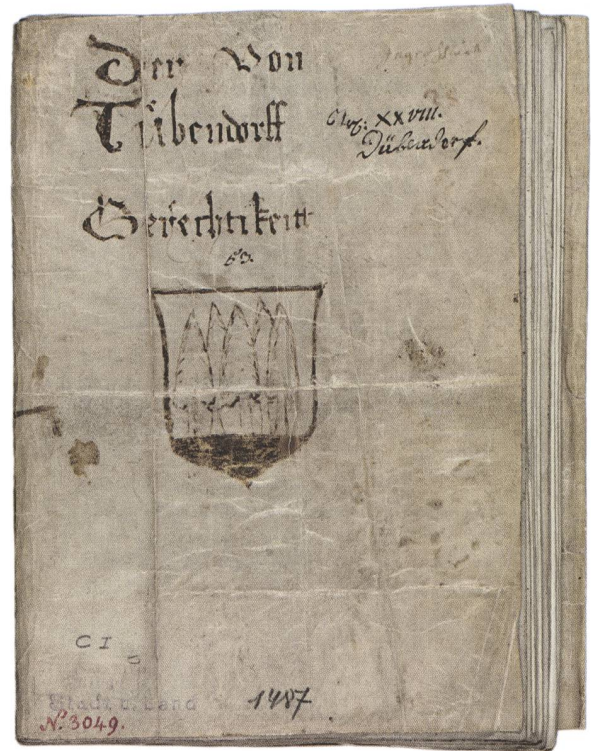 Der Von
Tübendorff
Gerechtikeitt
XXVIII.
Dübendorf.
53.
C I
Stadt u. Land
Nº 3049.
1487